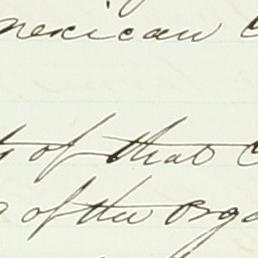 mexican
of that
of the Orga